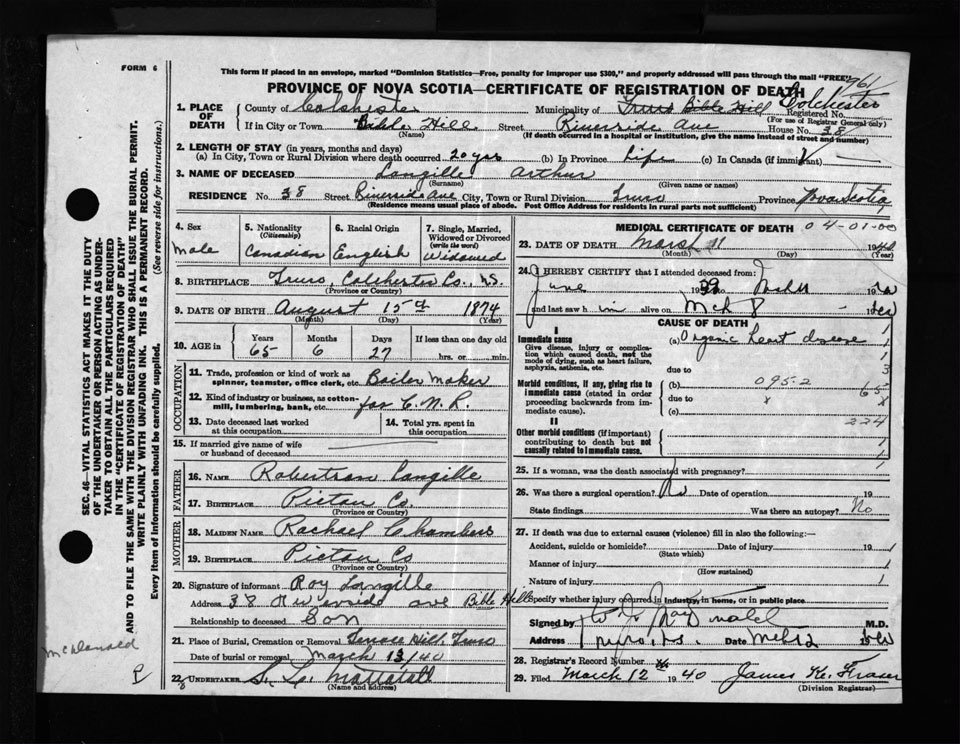 FORM 6
This form if placed in an envelope, marked "Dominion Statistics—Free, penalty for improper use $300," and properly addressed will pass through the mail "FREE"
PROVINCE OF NOVA SCOTIA—CERTIFICATE OF REGISTRATION OF DEATH
961
1. PLACE OF DEATH County of Colchester Municipality of Truro Bible Hill Colchester Registered No.
(For use of Registrar General only)
If in City or Town Bible Hill Street Riverside Ave House No. 38
(Name) (If death occurred in a hospital or institution, give the name instead of street and number)
2. LENGTH OF STAY (in years, months and days)
(a) In City, Town or Rural Division where death occurred 20 yrs (b) In Province Life (c) In Canada (if immigrant) —
3. NAME OF DECEASED Langille Arthur
(Surname) (Given name or names)
RESIDENCE No. 38 Street Riverside Ave City, Town or Rural Division Truro Province Nova Scotia
(Residence means usual place of abode. Post Office Address for residents in rural parts not sufficient)
4. Sex 5. Nationality (Citizenship) 6. Racial Origin 7. Single, Married, Widowed or Divorced (write the word)
Male Canadian English Widowed
8. BIRTHPLACE Truro, Colchester Co., N.S.
(Province or Country)
9. DATE OF BIRTH August 15th 1874
(Month) (Day) (Year)
10. AGE in Years Months Days If less than one day old
65 6 27 hrs. or min.
OCCUPATION
11. Trade, profession or kind of work as spinner, teamster, office clerk, etc. Boiler Maker
12. Kind of industry or business, as cotton-mill, lumbering, bank, etc. for C.N.R.
13. Date deceased last worked at this occupation 14. Total yrs. spent in this occupation
15. If married give name of wife or husband of deceased
FATHER
16. NAME Robertson Langille
17. BIRTHPLACE Pictou Co.
(Province or Country)
MOTHER
18. MAIDEN NAME Rachael Chambers
19. BIRTHPLACE Pictou Co
(Province or Country)
20. Signature of informant Roy Langille
Address 38 Riverside ave Bible Hill
Relationship to deceased Son
21. Place of Burial, Cremation or Removal Terrace Hill, Truro
Date of burial or removal March 13/40
22. UNDERTAKER S. L. Mattatall
(Name and address)
MEDICAL CERTIFICATE OF DEATH 04-01-00
23. DATE OF DEATH March 11 1940
(Month) (Day) (Year)
24. I HEREBY CERTIFY that I attended deceased from:
June 1939 to Mch 11 1940
and last saw him alive on Mch 8 1940
CAUSE OF DEATH
I
Immediate cause
Give disease, injury or complication which caused death, not the mode of dying, such as heart failure, asphyxia, asthenia, etc.
(a) Organic heart disease
due to
Morbid conditions, if any, giving rise to immediate cause (stated in order proceeding backwards from immediate cause).
(b) 095-2
due to
(c)
II
224
Other morbid conditions (if important) contributing to death but not causally related to immediate cause.
25. If a woman, was the death associated with pregnancy?
26. Was there a surgical operation? No Date of operation 19
State findings Was there an autopsy? No
27. If death was due to external causes (violence) fill in also the following:—
Accident, suicide or homicide? Date of injury 19
(State which)
Manner of injury
(How sustained)
Nature of injury
Specify whether injury occurred in industry, in home, or in public place
Signed by MacDonald M.D.
Address Truro, N.S. Date Mch 12 1940
28. Registrar's Record Number
29. Filed March 12 1940 James K. Fraser
(Division Registrar)
SEC. 46—VITAL STATISTICS ACT MAKES IT THE DUTY
OF THE UNDERTAKER OR PERSON ACTING AS UNDERTAKER TO OBTAIN ALL THE PARTICULARS REQUIRED
IN THE "CERTIFICATE OF REGISTRATION OF DEATH"
AND TO FILE THE SAME WITH THE DIVISION REGISTRAR WHO SHALL ISSUE THE BURIAL PERMIT.
WRITE PLAINLY WITH UNFADING INK. THIS IS A PERMANENT RECORD.
Every item of information should be carefully supplied. (See reverse side for instructions.)
McDonald
P